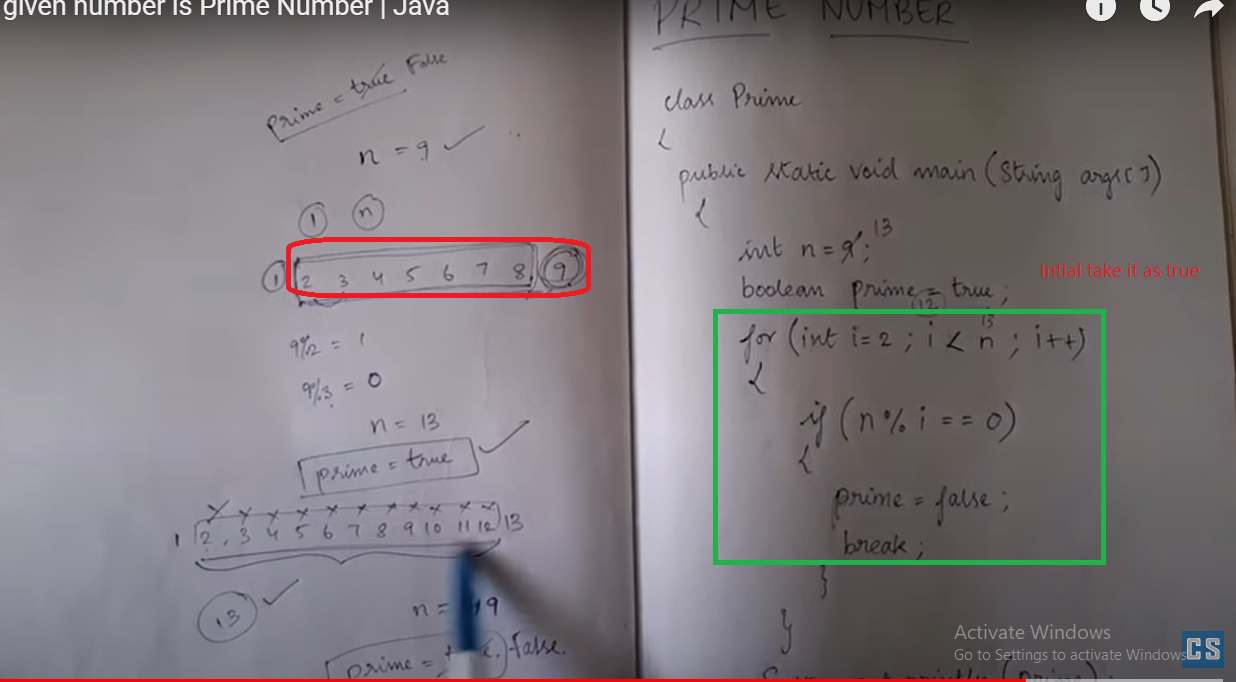 given number is Prime Number | Java
Prime = true False
n = 9
1 n
1 2 3 4 5 6 7 8 9
9%2 = 1
9%3 = 0
n = 13
prime = true
1 2, 3 4 5 6 7 8 9 10 11 12 13
13
prime = false.
PRIME NUMBER
class Prime
{
public static void main (String args[])
{
int n = 9; 13
Intial take it as true
boolean prime = true;
12 13
for (int i = 2 ; i < n ; i++)
{
if (n % i == 0)
{
prime = false ;
break ;
}
}
Activate Windows
Go to Settings to activate Windows
CS